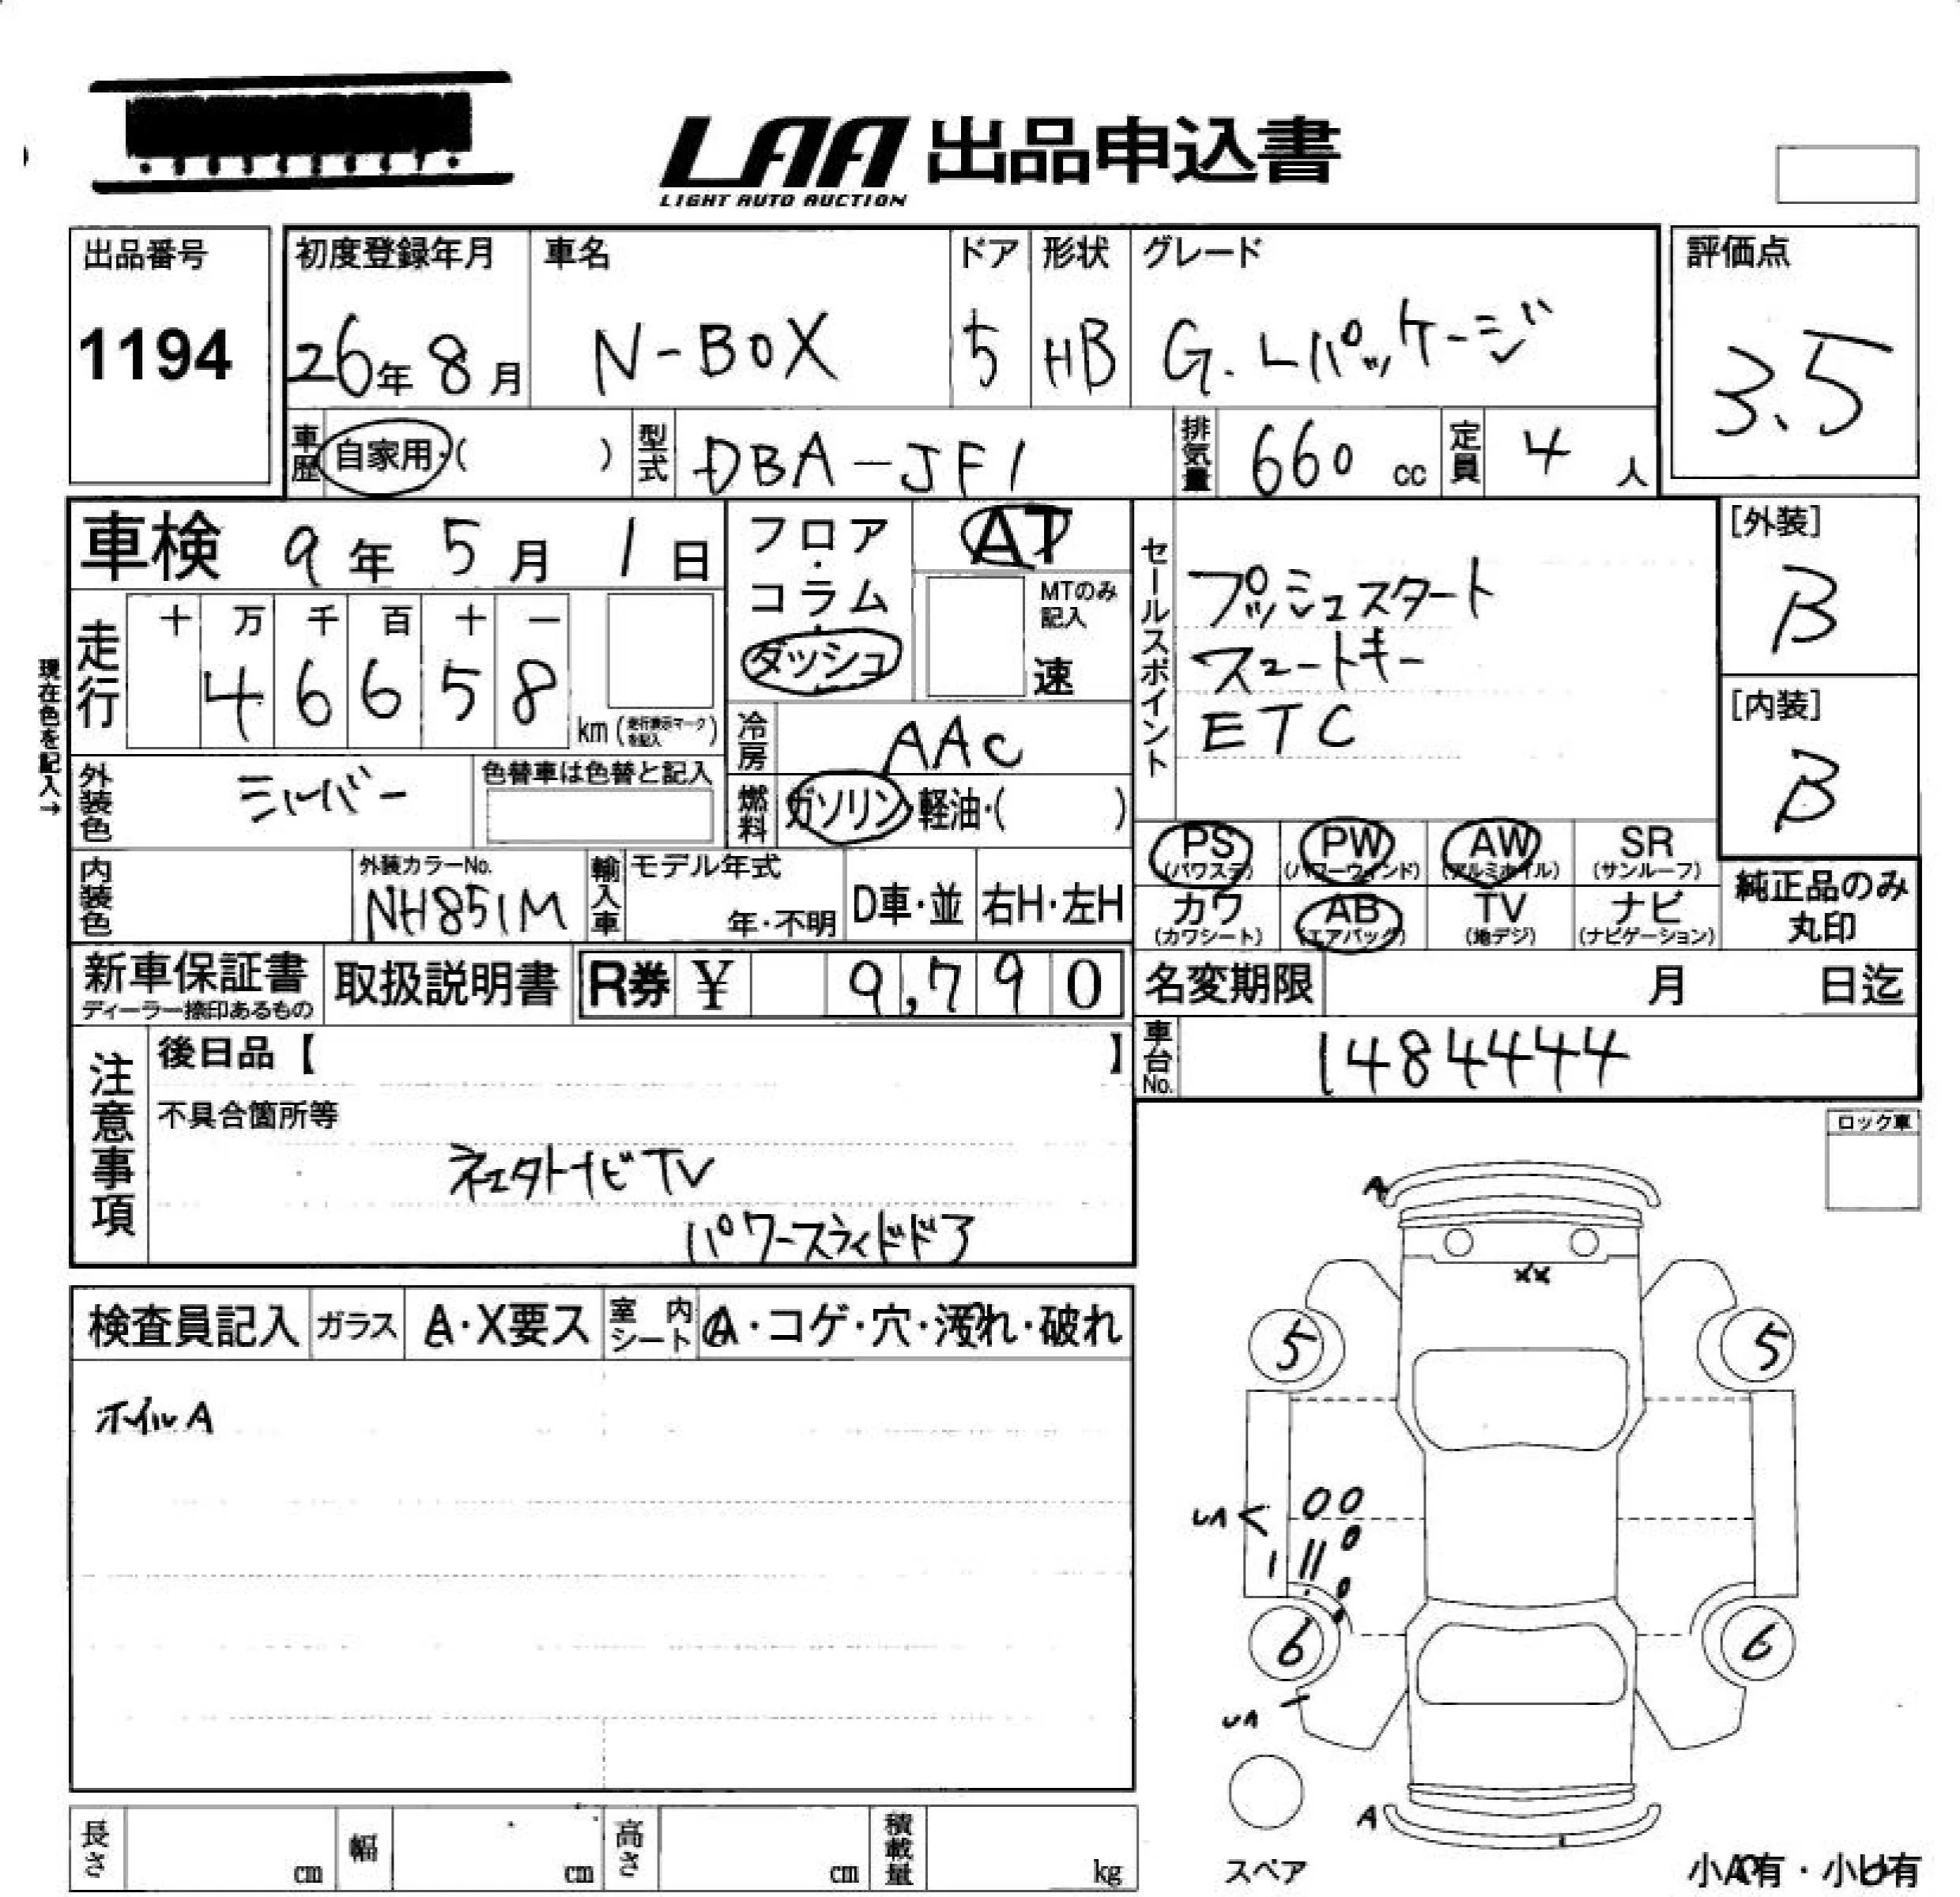 LAA 出品申込書
LIGHT AUTO AUCTION
出品番号
1194
初度登録年月
26年 8月
車名
N-BOX
ドア
5
形状
HB
グレード
G.Lパッケージ
評価点
3.5
車歴
自家用・( )
型式
DBA-JF1
排気量
660 cc
定員
4 人
車検 9年 5月 1日
フロア・コラム・ダッシュ
AT
MTのみ記入
速
セールスポイント
プッシュスタート
スマートキー
ETC
[外装]
B
[内装]
B
現在色を記入→
走行
十 万 千 百 十 一
4 6 6 5 8
km (走行表示マークを記入)
冷房
AAC
外装色
シルバー
色替車は色替と記入
燃料
ガソリン・軽油・( )
PS
(パワステ)
PW
(パワーウィンド)
AW
(アルミホイル)
SR
(サンルーフ)
カワ
(カワシート)
AB
(エアバッグ)
TV
(地デジ)
ナビ
(ナビゲーション)
純正品のみ
丸印
内装色
外装カラーNo.
NH851M
輸入車
モデル年式
年・不明
D車・並
右H・左H
新車保証書
ディーラー捺印あるもの
取扱説明書
R券 ¥ 9,790
名変期限 月 日迄
車台No.
1484444
注意事項
後日品【 】
不具合箇所等
社外ナビTV
パワースライドドア
ロック車
検査員記入
ガラス
A・X要ス
室内シート
A・コゲ・穴・汚れ・破れ
ホイルA
A
XX
5
5
6
6
A
スペア
長さ cm
幅 cm
高さ cm
積載量 kg
小A有・小U有